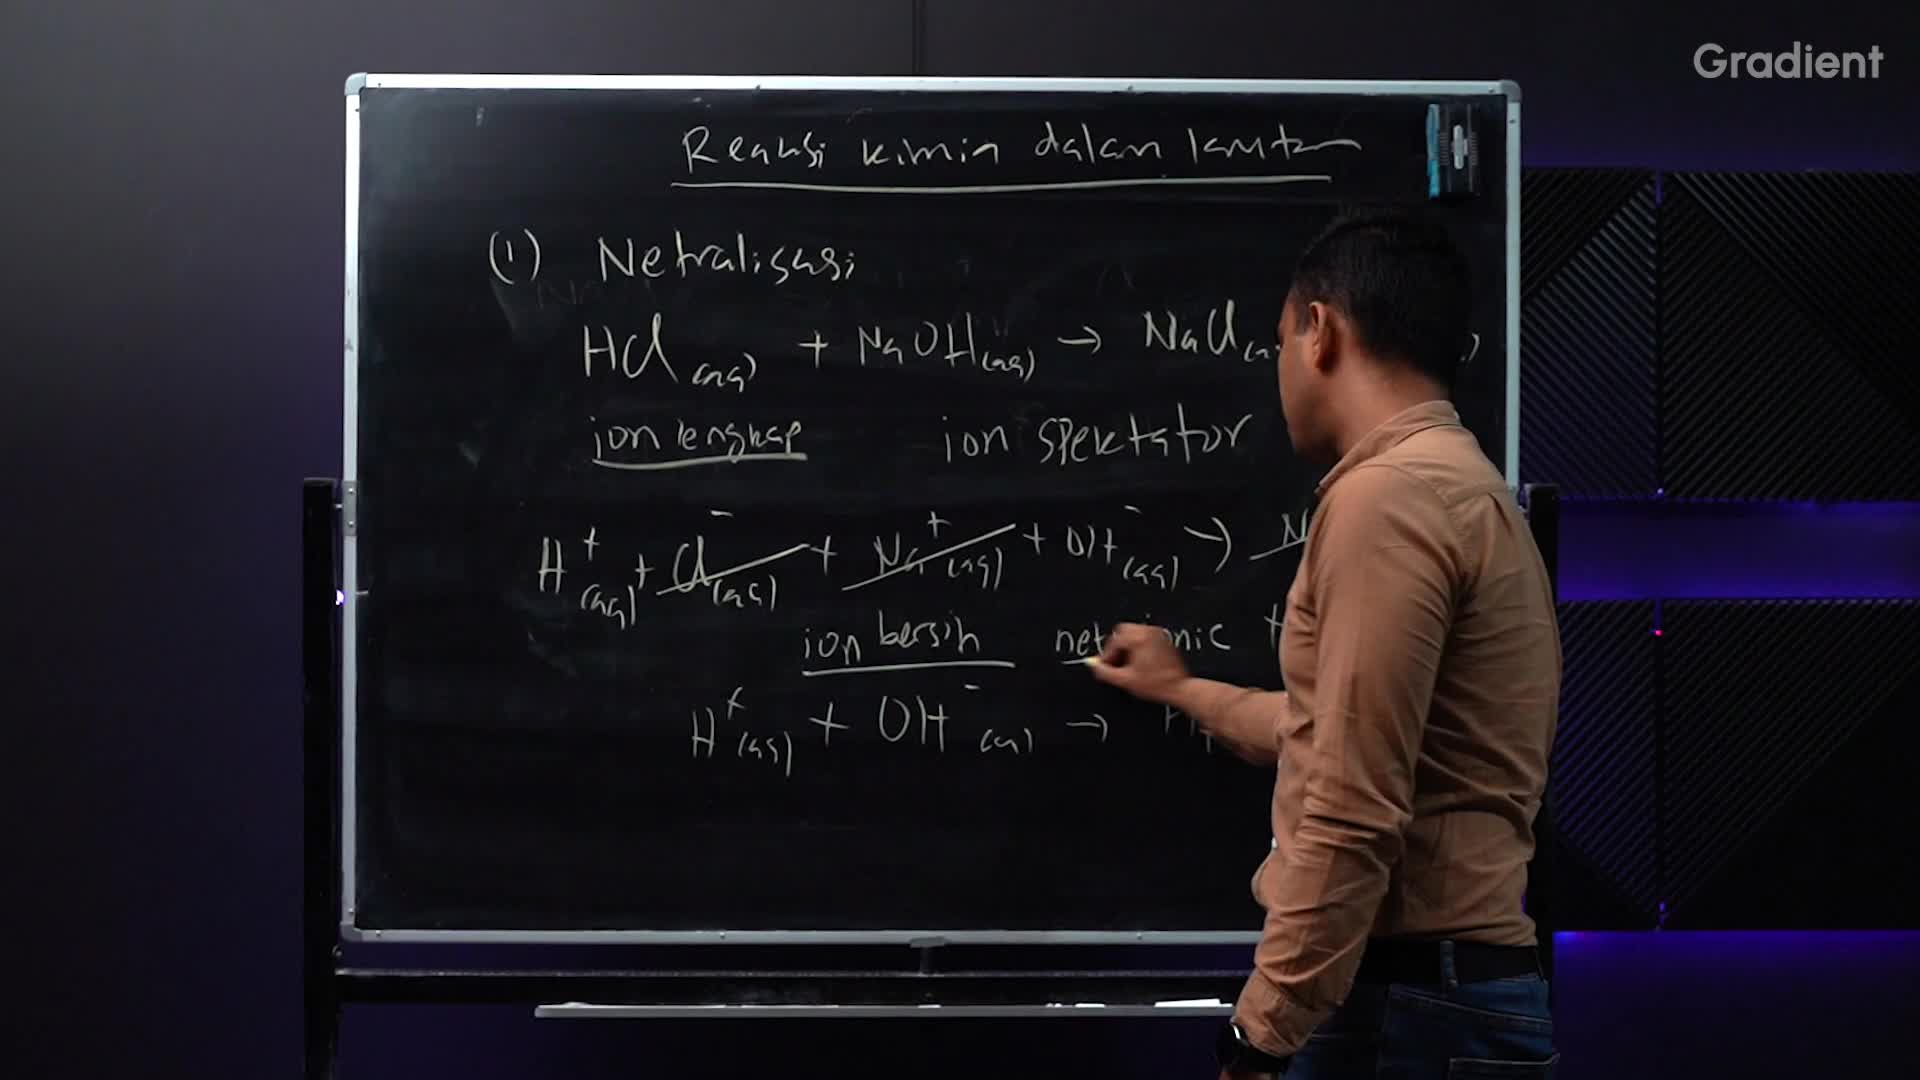 Gradient
Reaksi kimia dalam larutan
(1) Netralisasi
HCl (aq) + NaOH (aq) → NaCl (a
ion lengkap ion spektator
H⁺ (aq) + Cl⁻ (aq) + Na⁺ (aq) + OH⁻ (aq) → N
ion bersih net ionic
H⁺ (aq) + OH⁻ (aq) → H